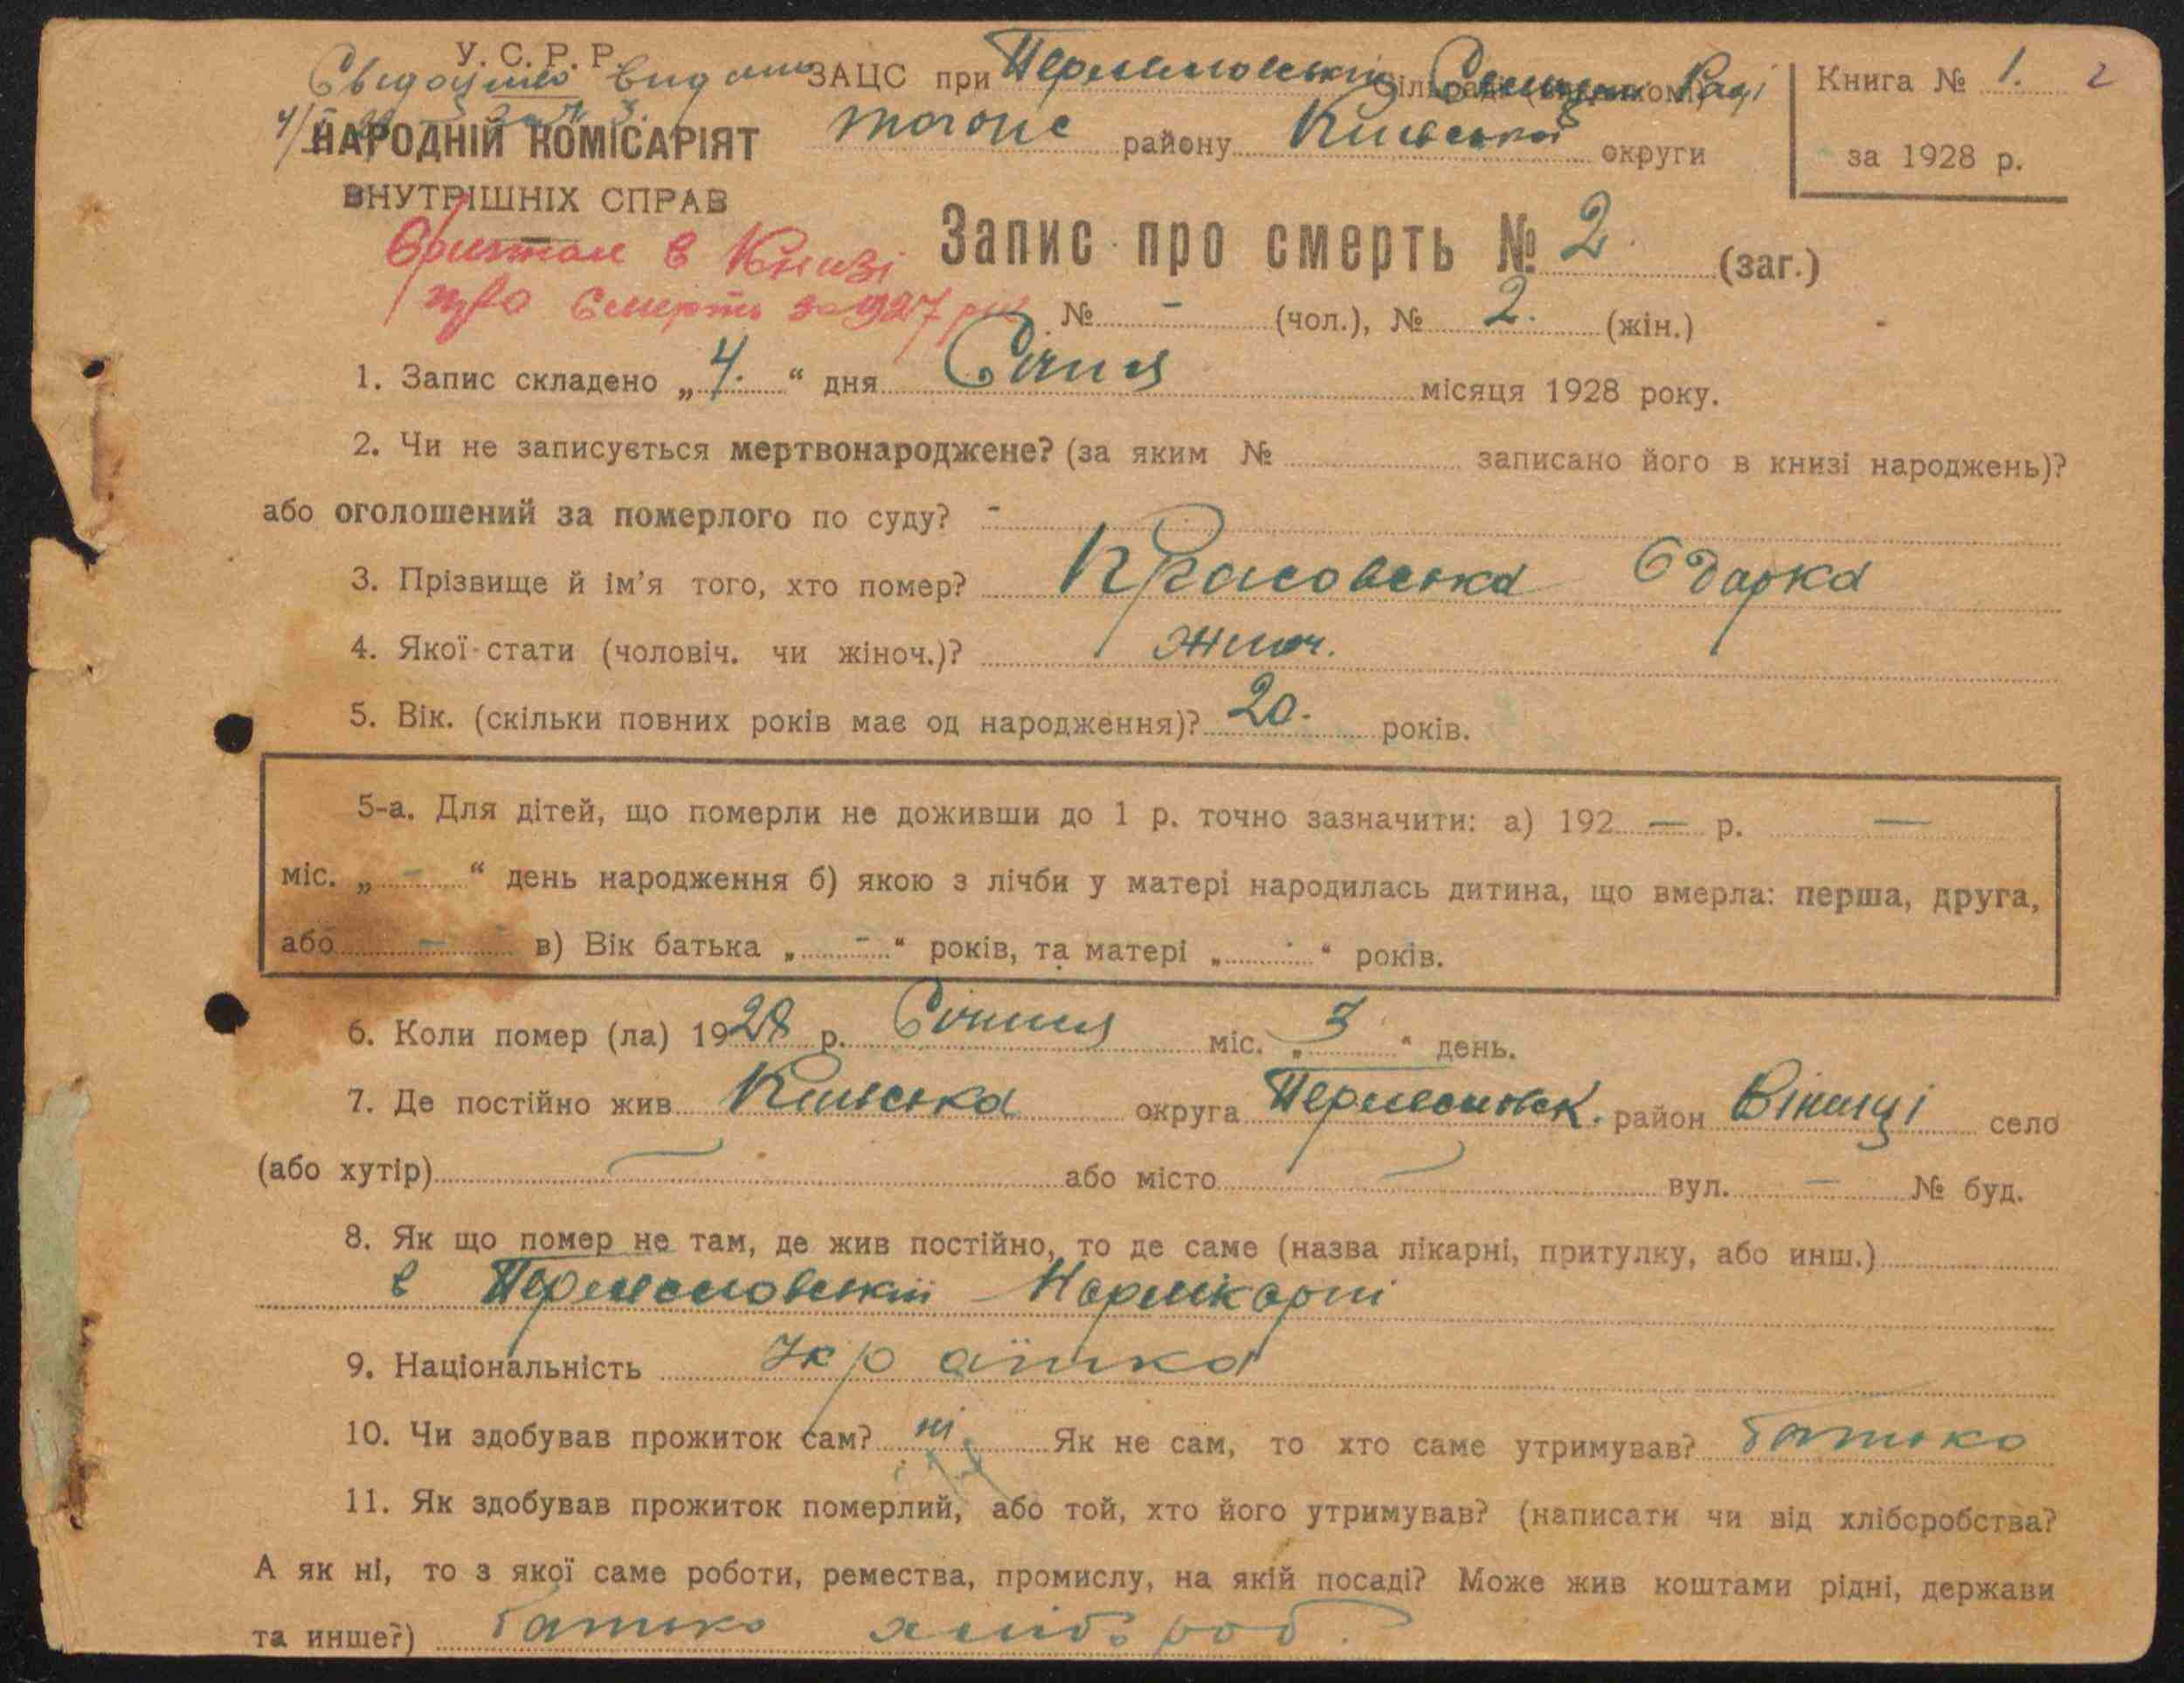 У. С. Р. Р.
Свідоцтво видано
ЗАЦС при Переяславській Селищн. Раді
Книга № 1. 2
4/І
НАРОДНІЙ КОМІСАРІЯТ
того ж району Київської округи
за 1928 р.
ВНУТРІШНІХ СПРАВ
Запис про смерть № 2. (заг.)
в Книзі
про смерть за 1927 рік
№ - (чол.), № 2. (жін.)
1. Запис складено „4.“ дня Січня місяця 1928 року.
2. Чи не записується мертвонароджене? (за яким № записано його в книзі народжень)?
або оголошений за померлого по суду? -
3. Прізвище й ім'я того, хто помер? Красовська Одарка
4. Якої стати (чоловіч. чи жіноч.)? жіноч.
5. Вік. (скільки повних років має од народження)? 20. років.
5-а. Для дітей, що померли не доживши до 1 р. точно зазначити: а) 192 — р. —
міс. „ - “ день народження б) якою з лічби у матері народилась дитина, що вмерла: перша, друга,
або — в) Вік батька „ - “ років, та матері „ - “ років.
6. Коли помер (ла) 1928 р. Січня міс. „3“ день.
7. Де постійно жив Київська округа Переяславськ. район Вінинці село
(або хутір) — або місто — вул. — № буд.
8. Як що помер не там, де жив постійно, то де саме (назва лікарні, притулку, або инш.)
в Переяславській Нарлікарні
9. Національність Українка
10. Чи здобував прожиток сам? ні Як не сам, то хто саме утримував? батько
11. Як здобував прожиток померлий, або той, хто його утримував? (написати чи від хліборобства?
А як ні, то з якої саме роботи, ремества, промислу, на якій посаді? Може жив коштами рідні, держави
та инше?) батько хлібороб.